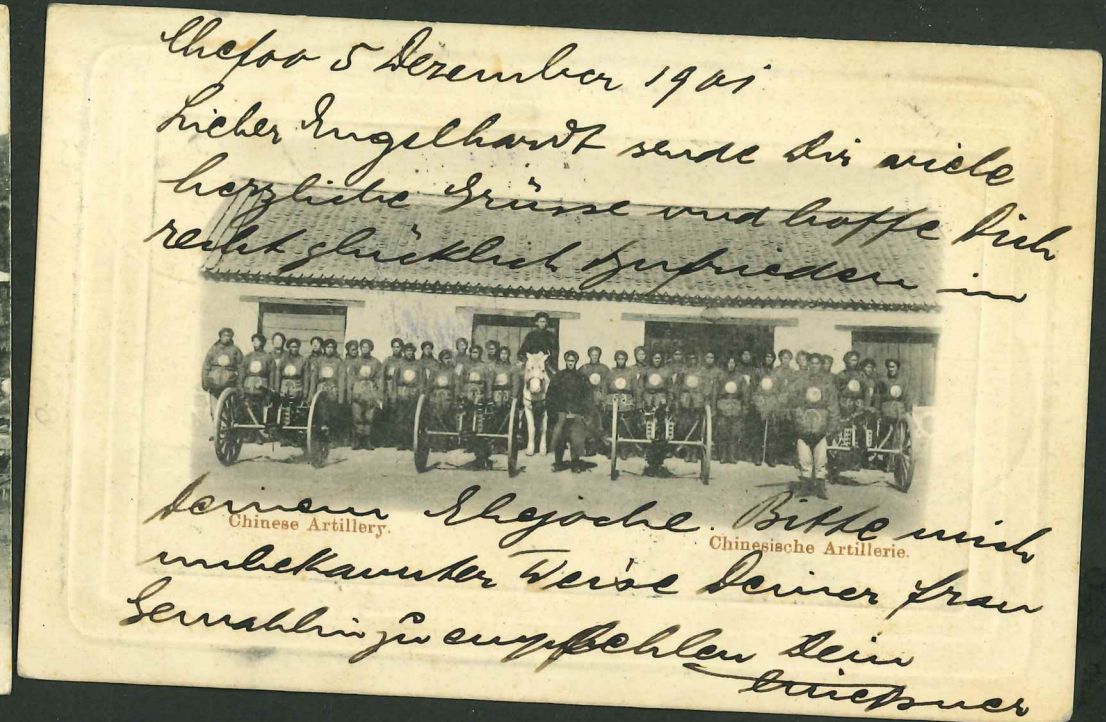 Chefoo 5 Dezember 1901
Lieber Engelhardt sende Dir viele
herzliche Grüsse und hoffe Dich
recht glücklich & zufrieden in
Deinem Ehejoche. Bitte mich
Chinese Artillery.
Chinesische Artillerie.
unbekannter Weise Deiner Frau
Gemahlin zu empfehlen Dein